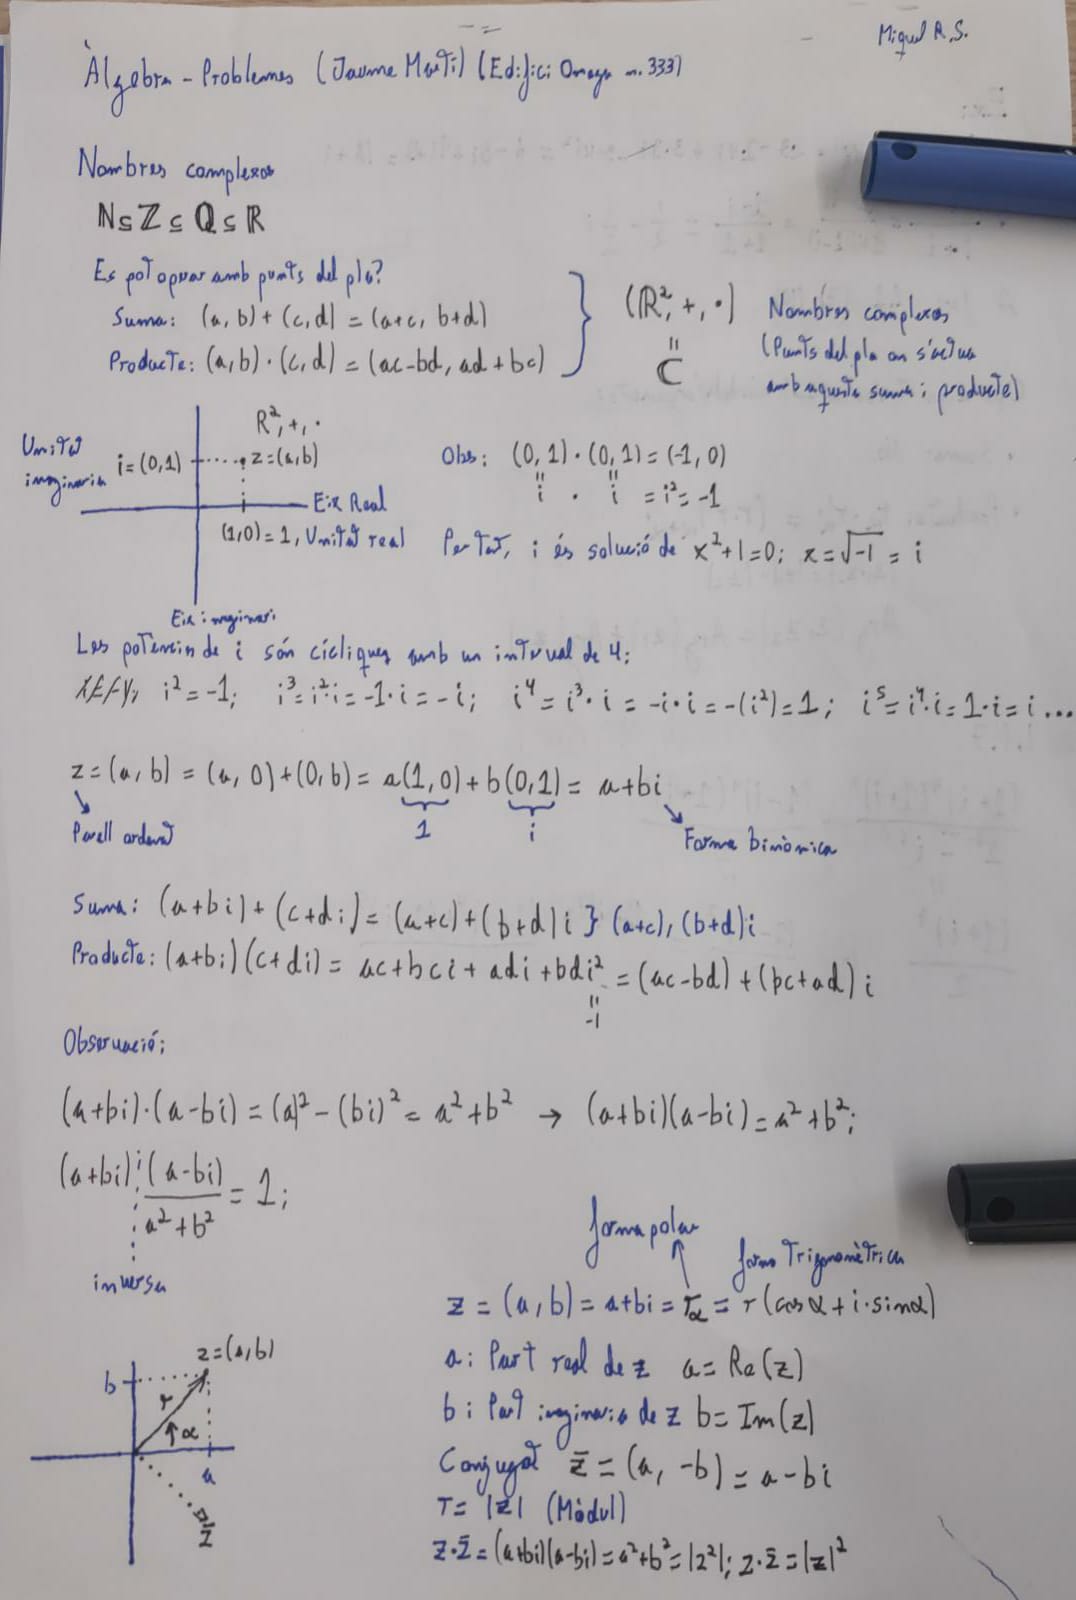 Miquel R.S.
Àlgebra - Problemes (Jaume Martí) (Edifici Omega n. 333)
Nombres complexos
ℕ ⊆ ℤ ⊆ ℚ ⊆ ℝ
Es pot operar amb punts del pla?
Suma: (a, b) + (c, d) = (a+c, b+d)
Producte: (a, b) · (c, d) = (ac-bd, ad+bc)
(ℝ², +, ·)
=
ℂ
Nombres complexos
(Punts del pla on s'actua
amb aquesta suma i producte)
Unitat
imaginaria
i = (0,1)
R², +, ·
z = (a, b)
Eix Real
(1,0) = 1, Unitat real
Eix imaginari
Obs: (0, 1) · (0, 1) = (-1, 0)
i · i = i² = -1
Per tant, i és solució de x²+1=0; x = √-1 = i
Les potencies de i són cícliques amb un interval de 4:
i² = -1; i³ = i²·i = -1·i = -i; i⁴ = i³·i = -i·i = -(i²) = 1; i⁵ = i⁴·i = 1·i = i ...
z = (a, b) = (a, 0) + (0, b) = a(1, 0) + b(0, 1) = a+bi
1 i
Parell ordenat
Forma binòmica
Suma: (a+bi) + (c+di) = (a+c) + (b+d)i } (a+c), (b+d)i
Producte: (a+bi)(c+di) = ac+bci+adi+bdi² = (ac-bd) + (bc+ad)i
=
-1
Observació:
(a+bi)·(a-bi) = (a)² - (bi)² = a²+b² → (a+bi)(a-bi) = a²+b²;
(a+bi) (a-bi)/a²+b² = 1;
inversa
forma polar
forma Trigonomètrica
z = (a, b) = a+bi = r_α = r(cos α + i·sin α)
a: Part real de z a = Re(z)
b: Part imaginaria de z b = Im(z)
Conjugat z̄ = (a, -b) = a-bi
r = |z| (Mòdul)
z·z̄ = (a+bi)(a-bi) = a²+b² = |z²|; z·z̄ = |z|²
z = (a, b)
b
r
α
a
z̄